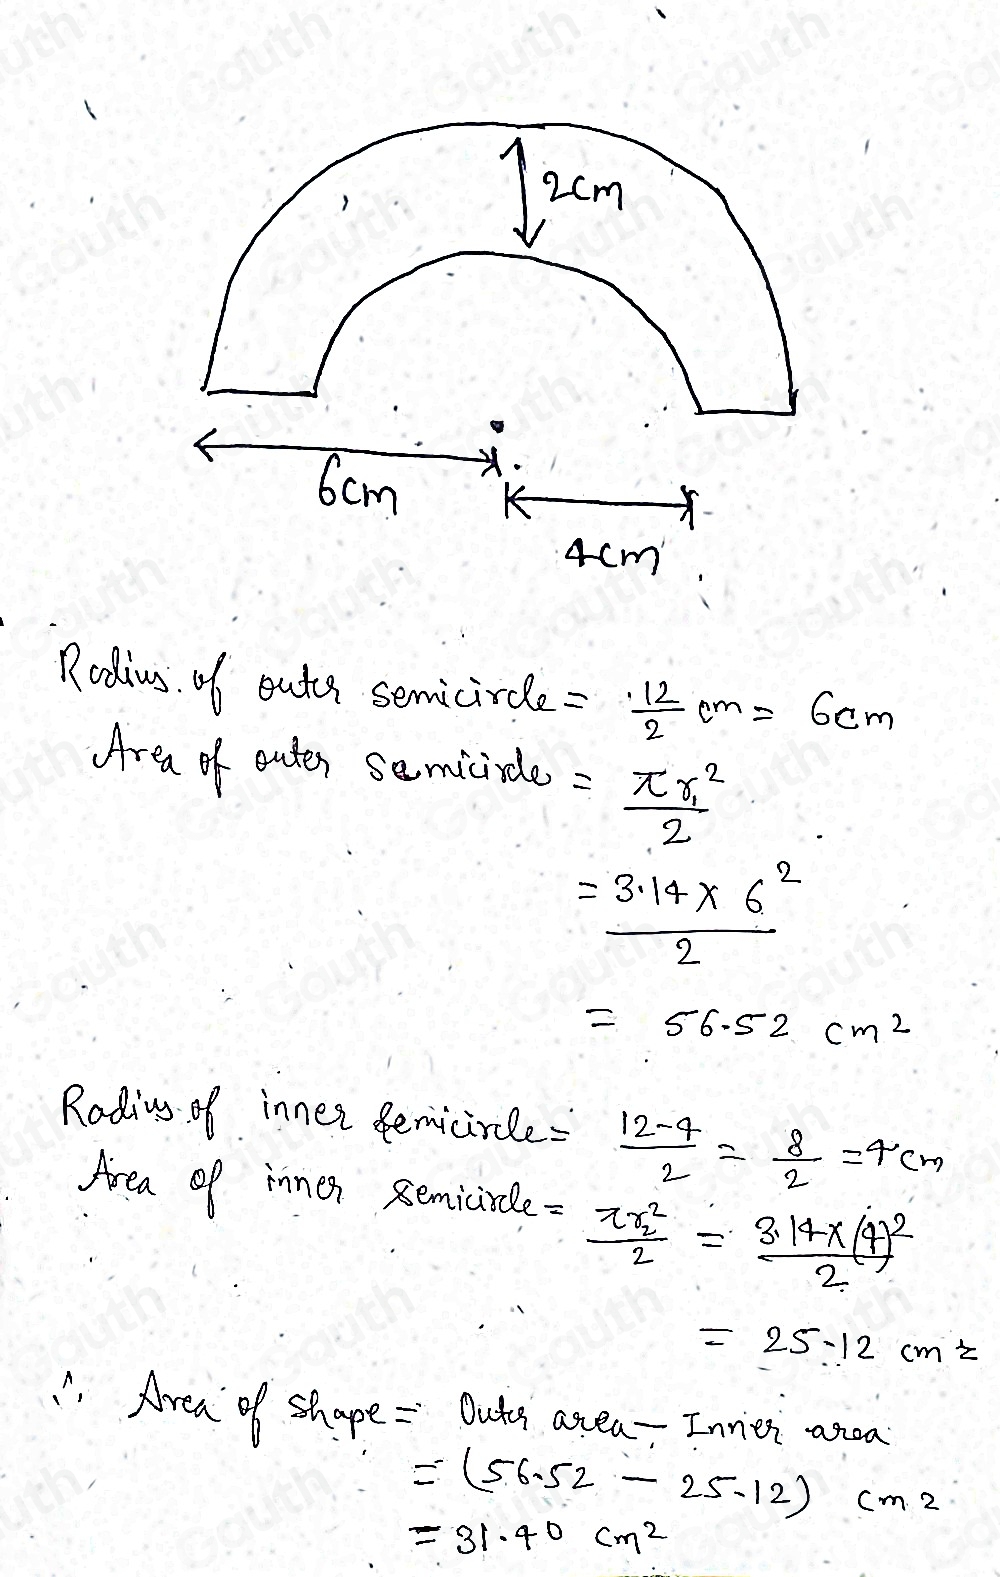 2cm
6cm
4cm
Radius of outer semicircle = 12/2 cm = 6cm
Area of outer semicircle = πr₁²/2
= 3.14 x 6²/2
= 56.52 cm2
Radius of inner semicircle = 12-4/2 = 8/2 = 4cm
Area of inner semicircle = πr₂²/2 = 3.14x(4)²/2
= 25.12 cm2
∴ Area of shape = Outer area - Inner area
= (56.52 - 25.12) cm2
= 31.40 cm2
Gauth